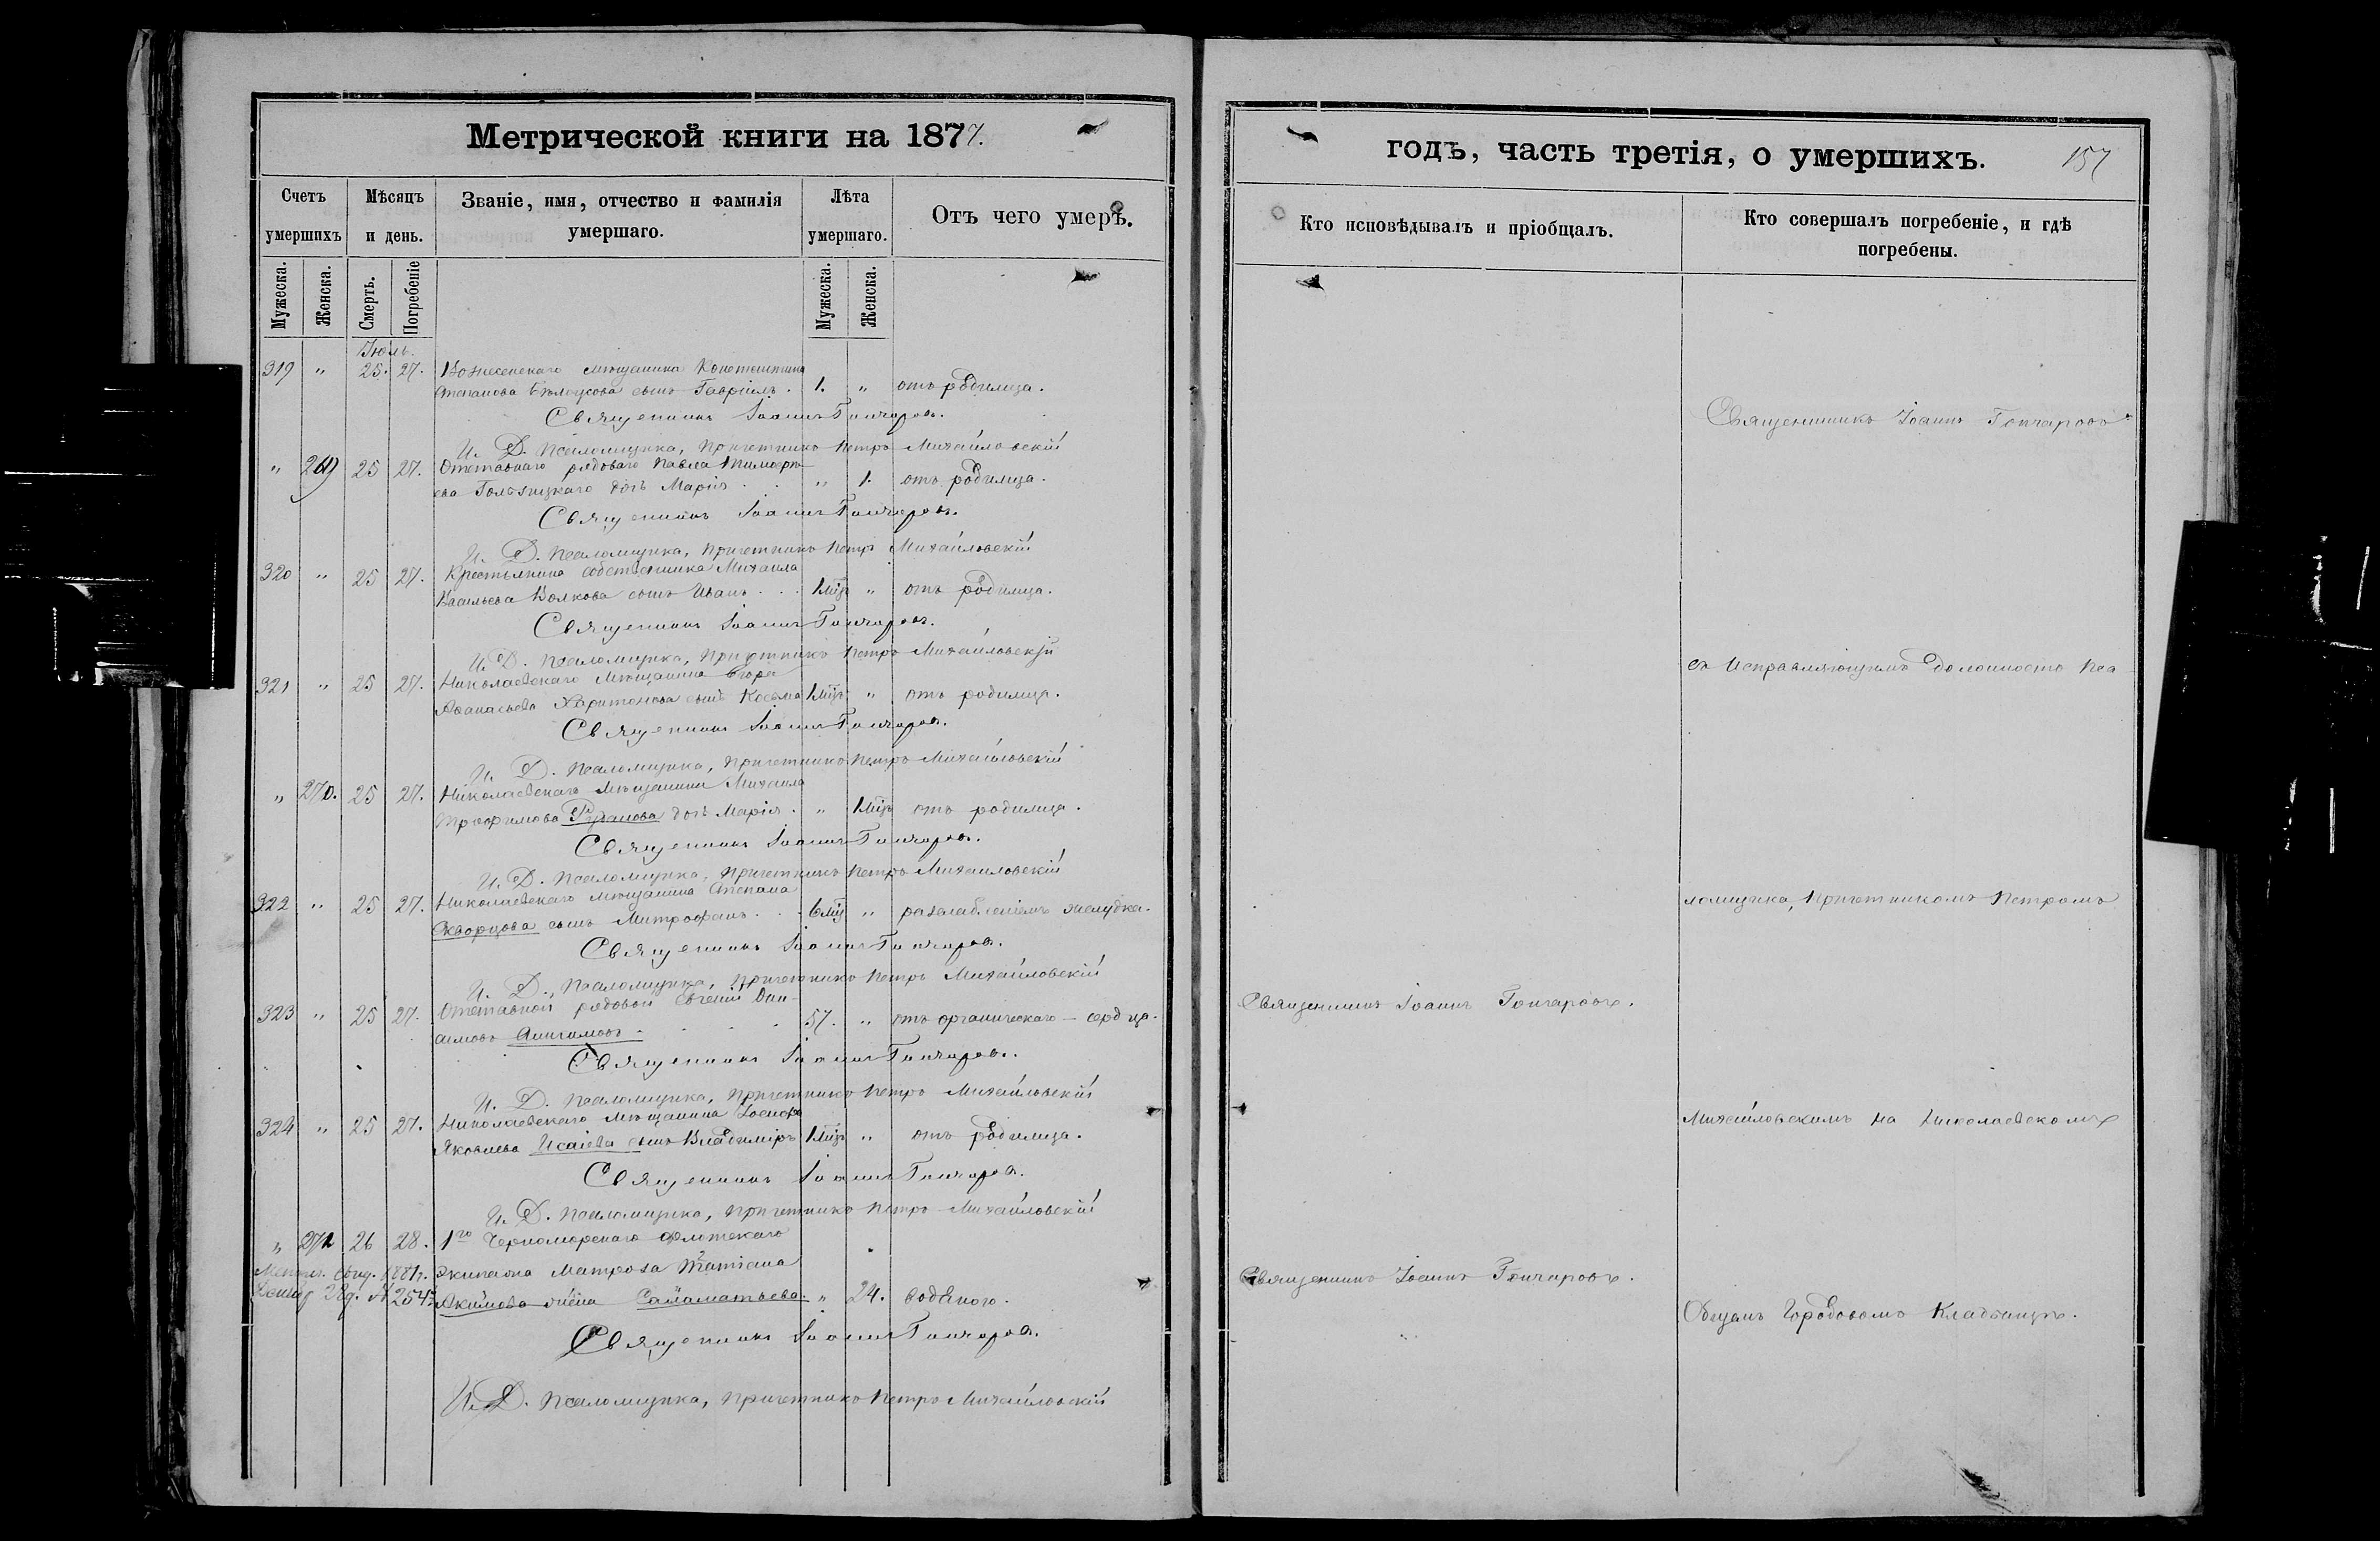 Метрической книги на 1877.
Счетъ умершихъ
Мѣсяцъ и день.
Званіе, имя, отчество и фамилія умершаго.
Лѣта умершаго.
Отъ чего умеръ.
Мужеска.
Женска.
Смерть.
Погребеніе
Мужеска.
Женска.
Іюль.
319 " 25. 27. Вознесенскаго мѣщанина Константина
Степанова сынъ Гавріилъ. 1. " отъ родимца.
Священникъ Іоаннъ Гончаровъ.
И. Д. Псаломщика, Причетникъ Петръ Михайловскій
" 269 25 27. Отставнаго рядоваго Павла
дочь Марія . . " 1. отъ родимца.
Священникъ Іоаннъ Гончаровъ.
И. Д. Псаломщика, Причетникъ Петръ Михайловскій
320 " 25 27. Крестьянина собственника Михаила
Васильева Волкова сынъ Иванъ . . . 1 мц " отъ родимца.
Священникъ Іоаннъ Гончаровъ.
И. Д. Псаломщика, Причетникъ Петръ Михайловскій
321 " 25 27. Николаевскаго Мѣщанина Егора
Аѳанасьева Харитонова сынъ Косьма 1 мц " отъ родимца.
Священникъ Іоаннъ Гончаровъ.
И. Д. Псаломщика, Причетникъ Петръ Михайловскій
" 270. 25 27. Николаевскаго Мѣщанина Михаила
Трофимова дочь Марія . " 1 мц отъ родимца.
Священникъ Іоаннъ Гончаровъ.
И. Д. Псаломщика, Причетникъ Петръ Михайловскій
322 " 25 27. Николаевскаго мѣщанина Степана
Скворцова сынъ Митрофанъ . . . 6 мц " разслабленіемъ желудка.
Священникъ Іоаннъ Гончаровъ.
И. Д. Псаломщика, Причетникъ Петръ Михайловскій
323 " 25 27. Отставной рядовой Евгеній
57. " отъ органическаго – сердца.
Священникъ Іоаннъ Гончаровъ.
И. Д. Псаломщика, Причетникъ Петръ Михайловскій
324 " 25 27. Николаевскаго Мѣщанина Іосифа
Яковлева Исаіева сынъ Владиміръ 1 мц " отъ родимца.
Священникъ Іоаннъ Гончаровъ.
И. Д. Псаломщика, Причетникъ Петръ Михайловскій
" 271 26 28. 1го Черноморскаго флотскаго
экипажа Матроса
Акимова жена " 24. водяного.
Священникъ Іоаннъ Гончаровъ.
И. Д. Псаломщика, Причетникъ Петръ Михайловскій
годъ, часть третія, о умершихъ. 157
Кто исповѣдывалъ и пріобщалъ.
Кто совершалъ погребеніе, и гдѣ погребены.
Священникъ Іоаннъ Гончаровъ
съ Исправляющимъ должность Пса-
ломщика, Причетникомъ Петромъ
Священникъ Іоаннъ Гончаровъ.
Михайловскимъ на Николаевскомъ
Священникъ Іоаннъ Гончаровъ.
Общемъ Городовомъ Кладбищѣ.